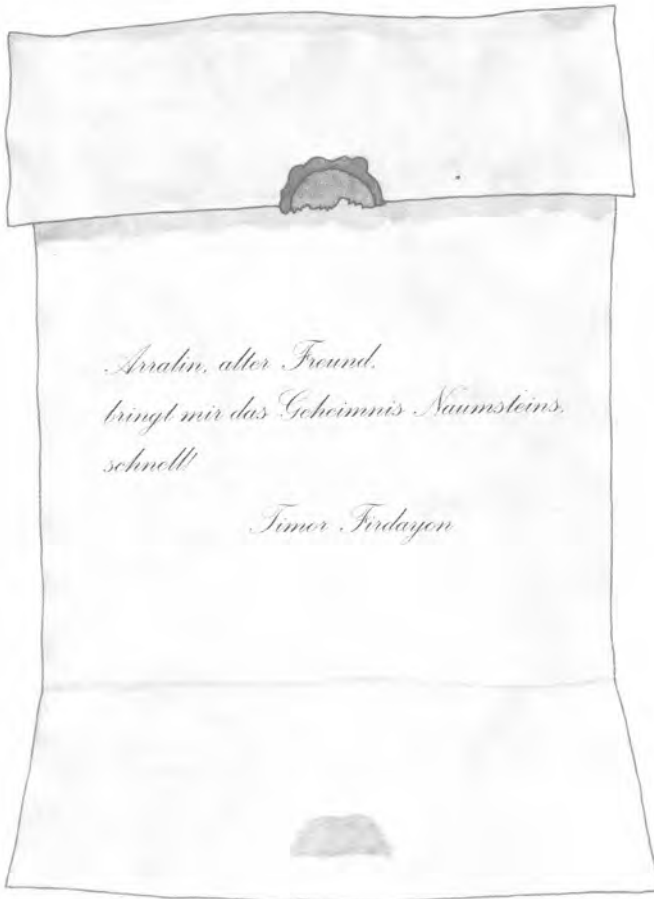 Arralin, alter Freund,
bringt mir das Geheimnis Naumsteins,
schnell!
Timor Firdayon